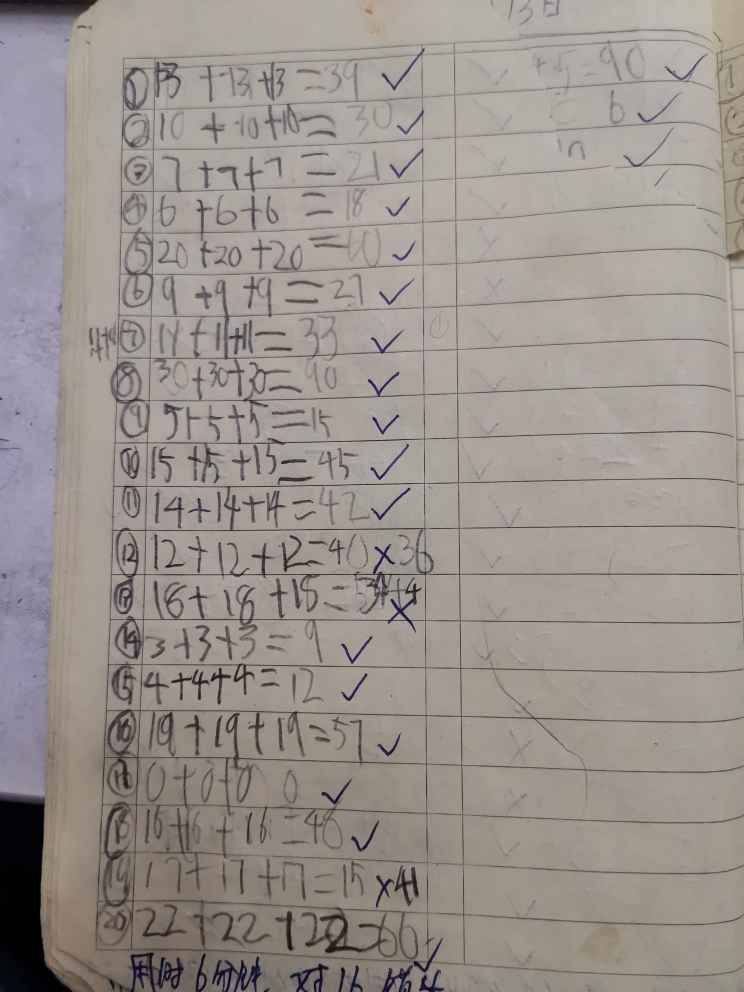 13日
① 13+13+13=39 ✓
② 10+10+10=30 ✓
③ 7+7+7=21 ✓
④ 6+6+6=18 ✓
⑤ 20+20+20=60 ✓
⑥ 9+9+9=27 ✓
⑦ 11+11+11=33 ✓
⑧ 30+30+30=90 ✓
⑨ 5+5+5=15 ✓
⑩ 15+15+15=45 ✓
⑪ 14+14+14=42 ✓
⑫ 12+12+12=40 × 36
⑬ 18+18+18= ×
⑭ 3+3+3=9 ✓
⑮ 4+4+4=12 ✓
⑯ 19+19+19=57 ✓
⑰ 0+0+0 0 ✓
⑱ 16+16+16=48 ✓
⑲ 17+17+17=15 × 41
⑳ 22+22+22=66 ✓
用时6分钟, 对16 错4
+5=90 ✓
6 ✓
✓